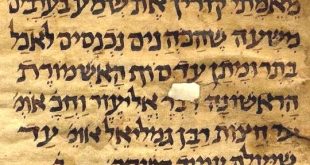 מאמתי קורין את שמע בערבים
משעה שהכהנים נכנסים לאכל
בתרומתן עד סוף האשמורת
הראשונה אליעזר וחכ אומ'
עד חצות רבן גמליאל אומ' עד